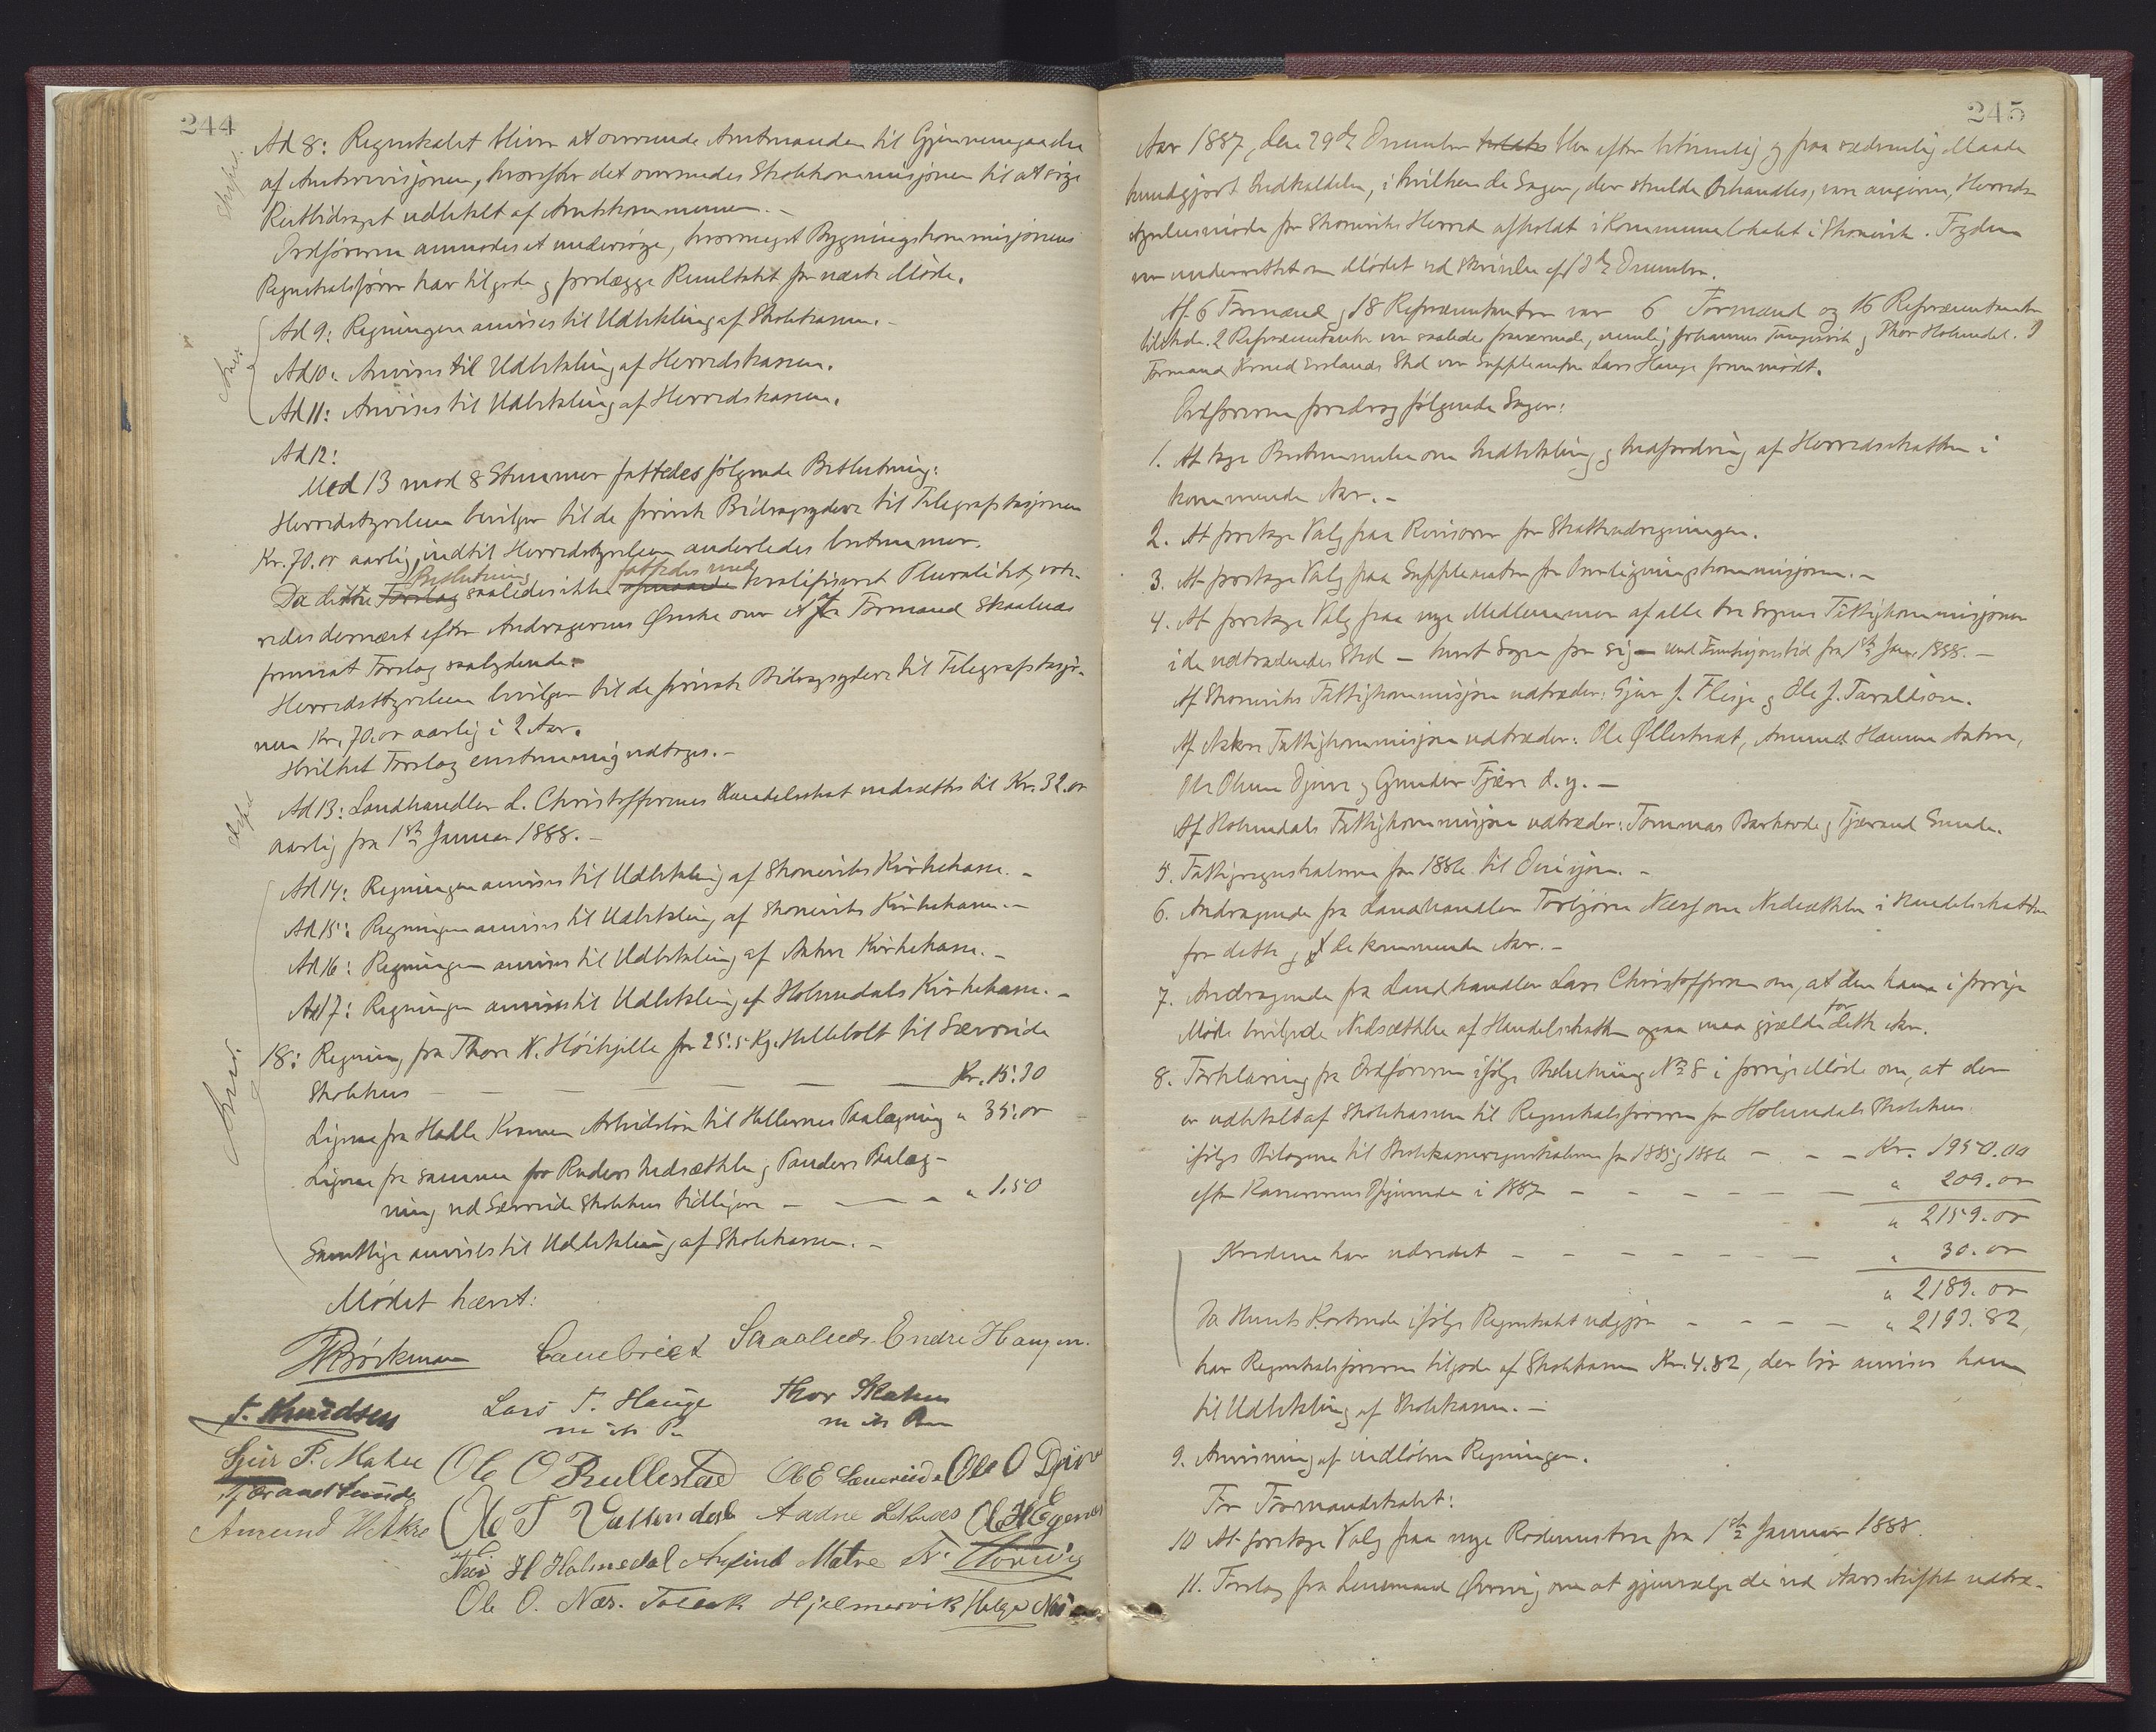 244
Ad 8: Regnskabet bliver at oversende Amtmanden til Gjennemgaaelse
af Amtsrevisjonen, hvorefter det oversendes Skolekommisjonen til at søge
Rentbidraget udbetalt af Amtskommunen. -
Ordføreren anmodes at undersøge, hvormeget Bygningskommisjonens
Regnskabsfører har tilgode og forelægge Resultatet for næste Møde.
Ad 9: Regningen anvises til Udbetaling af Skolekassen. -
Ad 10: Anvises til Udbetaling af Herredskassen.
Ad 11: Anvises til Udbetaling af Herredskassen.
Ad 12:
Med 13 mod 8 Stemmer fattedes følgende Beslutning:
Herredsstyrelsen bevilger til de private Bidragsydere til Telegrafstasjonen
Kr. 70.00 aarlig, indtil Herredsstyrelsen anderledes bestemmer.
Beslutning fattedes med
Da dette Forslag saaledes ikke opnaaede kvalifiseret Pluralitet, vote-
redes dernæst efter Andragernes Ønske over et af Formand Skaalnes
fremsat Forslag saalydende:
Herredsstyrelsen bevilger til de private Bidragsydere til Telegrafstasjo-
nen Kr. 70.00 aarlig i 2 Aar.
Hvilket Forslag enstemmig vedtoges. -
Ad 13: Landhandler L. Christoffersens Handelsskat nedsættes til Kr. 32.00
aarlig fra 1ste Januar 1888. -
Ad 14: Regningen anvises til Udbetaling af Skonevigs Kirkekasse. -
Ad 15: Regningen anvises til Udbetaling af Skoneviks Kirkekasse. -
Ad 16: Regningen anvises til Udbetaling af Aakre Kirkekasse. -
Ad 17: Regningen anvises til Udbetaling af Holmedals Kirkekasse. -
18: Regning fra Thore N. Høikjelle for 25.5 Kg. Hellebolt til Sævreide
Skolehus - - - - Kr. 15.30
Ligesaa fra Halle Kvamen Arbeidsløn til Hellernes Paalægning " 35.00
Ligesaa fra samme for Ruders Indsættelse og Panders Paalæg-
ning ved Sævreide Skolehus tidligere - - - " 1.50
Samtlige anvises til Udbetaling af Skolekassen. -
Mødet hævet:
HBrockmann Lambrect Skaalnes Endre Haugen.
T. Knudsen Lars T. Hauge Thor Skaken
m its P. m its Pen
Sjur P. Matre Ole O Bullestad Ole E Sævreide Ole O Djøve
Tjærand Sunde
Amund H Akre Ole T Vattendal Aadne Lethnes Ole H Egenes
Thor H Holmedal Arfind Matre N. Thorvig
Ole O. Næs. Tollak Hjelmervik Helge Næs
245
Aar 1887, den 29de December holdtes blev efter betimelig og paa sædvanlig Maade
kundgjort Indkaldelse, i hvilken de Sager, der skulde behandles, vare angivne, Herreds-
styrelsesmøde for Skoneviks Herred afholdt i Kommunelokalet i Skonevik. Fogden
var underrettet om Mødet ved Skrivelse af 13de December.
Af 6 Formænd og 18 Repræsentanter var 6 Formænd og 16 Repræsentanter
tilstede. 2 Repræsentanter var saaledes fraværende, nemlig Johannes Tungesvik og Thor Holmedal. I
Formand Kornel Ersland's Sted var Suppleanten Lars Hauge fremmødt.
Ordføreren foredrog følgende Sager:
1. At tage Bestemmelse om Indbetaling og Indfordring af Herredsskatten i
kommende Aar. -
2. At foretage Valg paa Revisorer for Skatteudregningen.
3. At foretage Valg paa Suppleanter for Overligningskommisjonen. -
4. At foretage Valg paa nye Medlemmer af alle tre Sognes Fattigkommisjoner
i de udtrædendes Sted - hvert Sogn for sig - med Funksjonstid fra 1ste Jan. 1888. -
Af Skoneviks Fattigkommisjon udtræder: Sjur J. Flesje og Ole J. Taraldsøen.
Af Aakre Fattigkommisjon udtræder: Ole Øllestvet, Amund Hansen Aakre,
Ole Olsen Djøve og Gunder Fjære d. y. -
Af Holmedals Fattigkommisjon udtræder: Tommas Barkved og Tjærand Sunde.
5. Fattigregnskaberne for 1886 til Desisjon. -
6. Andragende fra Landhandler Torbjørn Næs om Nedsættelse i Handelsskatten
for dette og de kommende Aar. -
7. Andragende fra Landhandler Lars Christoffersen om, at den ham i forrige
Møde bevilgede Nedsættelse af Handelsskatten ogsaa maa gjælde for dette Aar.
8. Forklaring fra Ordføreren ifølge Beslutning No 8 i forrige Møde om, at der
er udbetalt af Skolekassen til Regnskabsføreren for Holmedals Skolehus
ifølge Bilagene til Skolekasseregnskaberne for 1885 og 1886 - - - Kr. 1950.00
efter Kassererens Opgivende i 1887 - - - - - " 209.00
" 2159.00
Kredsen har udredet - - - - - " 30.00
" 2189.00
Da Husets Kostende ifølge Regnskabet udgjør - - - - " 2193.82,
har Regnskabsføreren tilgode af Skolekassen Kr. 4.82, der bør anvises ham
til Udbetaling af Skolekassen. -
9. Anvisning af indløbne Regninger.
For Formandskabet:
10 At foretage Valg paa nye Rodemestre fra 1ste Januar 1888.
11. Forslag fra Lensmand Qvrvig om at gjenvælge de ved Aarsskiftet udtræ-